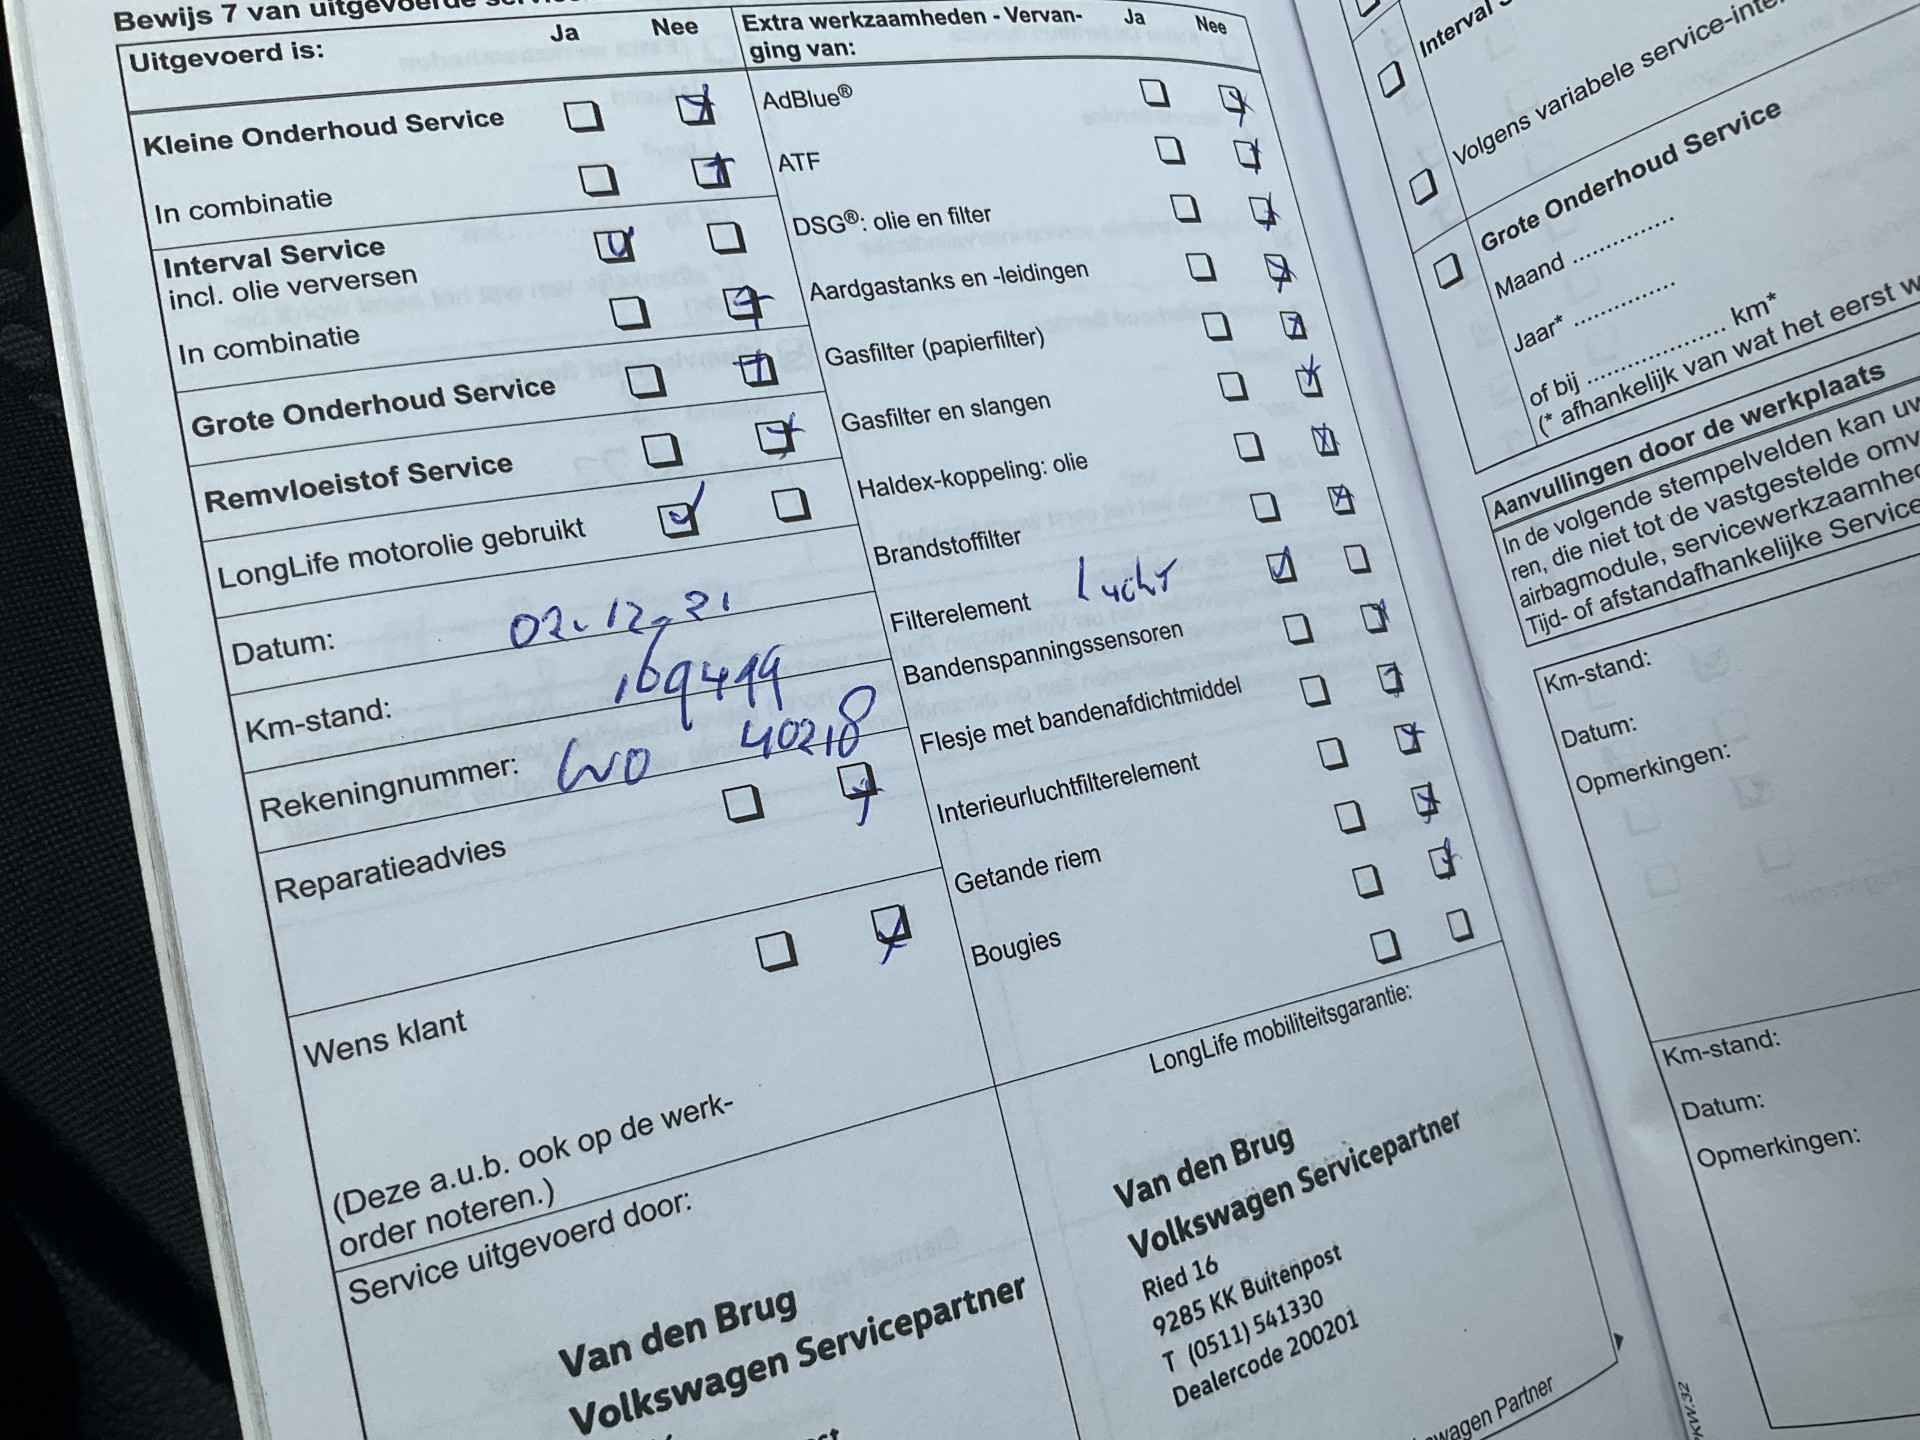 Bewijs 7 van uitgevoerde
Uitgevoerd is:
Ja
Nee
Kleine Onderhoud Service
In combinatie
Interval Service
incl. olie verversen
In combinatie
Grote Onderhoud Service
Remvloeistof Service
LongLife motorolie gebruikt
Datum: 02.12.21
Km-stand: 169499
Rekeningnummer: WO 40218
Reparatieadvies
Wens klant
(Deze a.u.b. ook op de werk-
order noteren.)
Service uitgevoerd door:
Van den Brug
Volkswagen Servicepartner
Extra werkzaamheden - Vervan-
ging van:
Ja
Nee
AdBlue®
ATF
DSG®: olie en filter
Aardgastanks en -leidingen
Gasfilter (papierfilter)
Gasfilter en slangen
Haldex-koppeling: olie
Brandstoffilter
Filterelement lucht
Bandenspanningssensoren
Flesje met bandenafdichtmiddel
Interieurluchtfilterelement
Getande riem
Bougies
LongLife mobiliteitsgarantie:
Van den Brug
Volkswagen Servicepartner
Ried 16
9285 KK Buitenpost
T (0511) 541330
Dealercode 200201
Partner
Interval
Volgens variabele
Grote Onderhoud Service
Maand ..............
Jaar* ..............
of bij .................... km*
(* afhankelijk van wat het eerst
Aanvullingen door de werkplaats
In de volgende stempelvelden kan
ren, die niet tot de vastgestelde
airbagmodule,
Tijd- of afstandafhankelijke
Km-stand:
Datum:
Opmerkingen:
Km-stand:
Datum:
Opmerkingen: